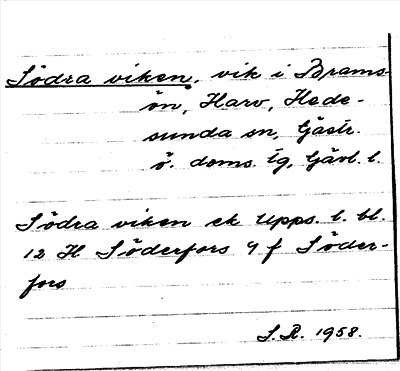 Södra viken, vik i Brams-
ön, Harv, Hede-
sunda sn, Gästr.
ö. doms. tg, Gävl. l.
Södra viken ek Upps. l. bl.
12 H Söderfors 9 f Söder-
fors
S.R. 1958.